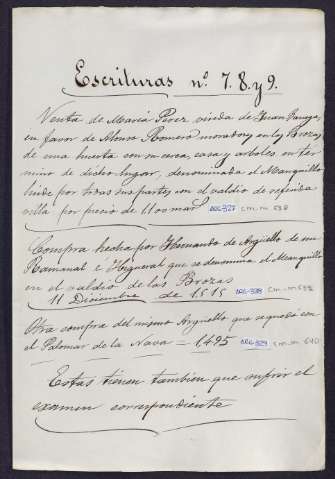 Escrituras nº 7. 8. y 9.
Venta de Maria Perez viuda de Juan
en favor de Alonso Romero morador en las Brozas
de una huerta con su cerca, casa y arboles en tér
mino de dicho lugar, denominada el Manquillo
linde por todas sus partes con el valdio de referida
villa por precio de 1100 mar.s
Compra hecha por Hernando de Argüello de un
Ramanal é Higueral que se denomina el Manquillo
en el valdio de las Brozas
11 Diciembre de 1515
Otra compra del mismo Argüello que segundo con
el Palomar de la Nava = 1,495
Estas tienen tambien que sufrir el
examen correspondiente